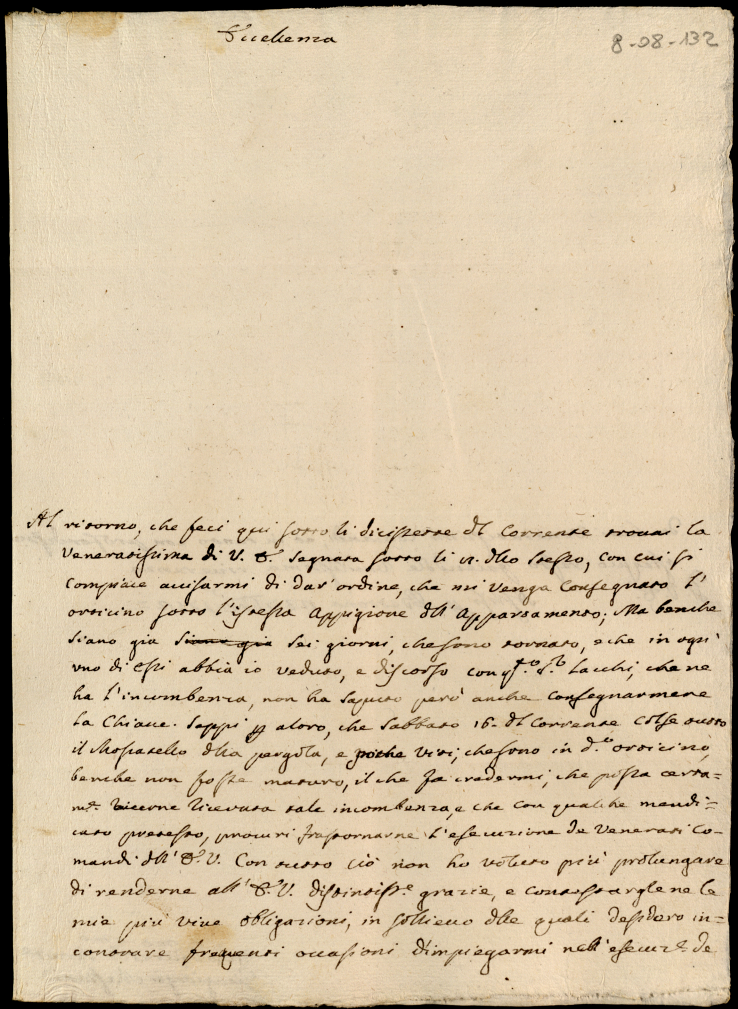 Eccellenza
8-08-132
Al ritorno, che feci qui sotto li dicissette dl Corrente trovai la
Veneratissima di V. E. segnata sotto li 12. dłło stesso, con cui si
compiace avisarmi di dar' ordine, che mi venga Consegnato l'
orticino sotto l'istessa Appigione dłł' Appartamento; Ma benche
siano gia siano gia sei giorni, che sono tornato, e che in ogn'
uno di essi abbia io veduto, e discorso con qto. Sr. Lacchi, che ne
ha l'incombenza, non ha saputo però anche Consegnarmene
la Chiave. Seppi p aloro, che Sabbato 16. dl Corrente Colse tutto
il Moscatello dłła pergola, e poche viti, che sono in do. orticino,
benche non fosse maturo, il che fa credermi, che possa certa=
me. ricevuta tale incombenza, e che con qualche mendi=
cato pretesto, procuri frastornarne l'esecuzione de Venerati Co=
mandi dłł' E. V. Con tutto ciò non ho voluto più prolungare
di renderne all' E. V. distintisse. grazie, e contestarglene le
mie più vive obligazioni, in sollievo dłłe quali desidero in=
contrare frequenti occasioni d'impiegarmi nell' esecuze. de